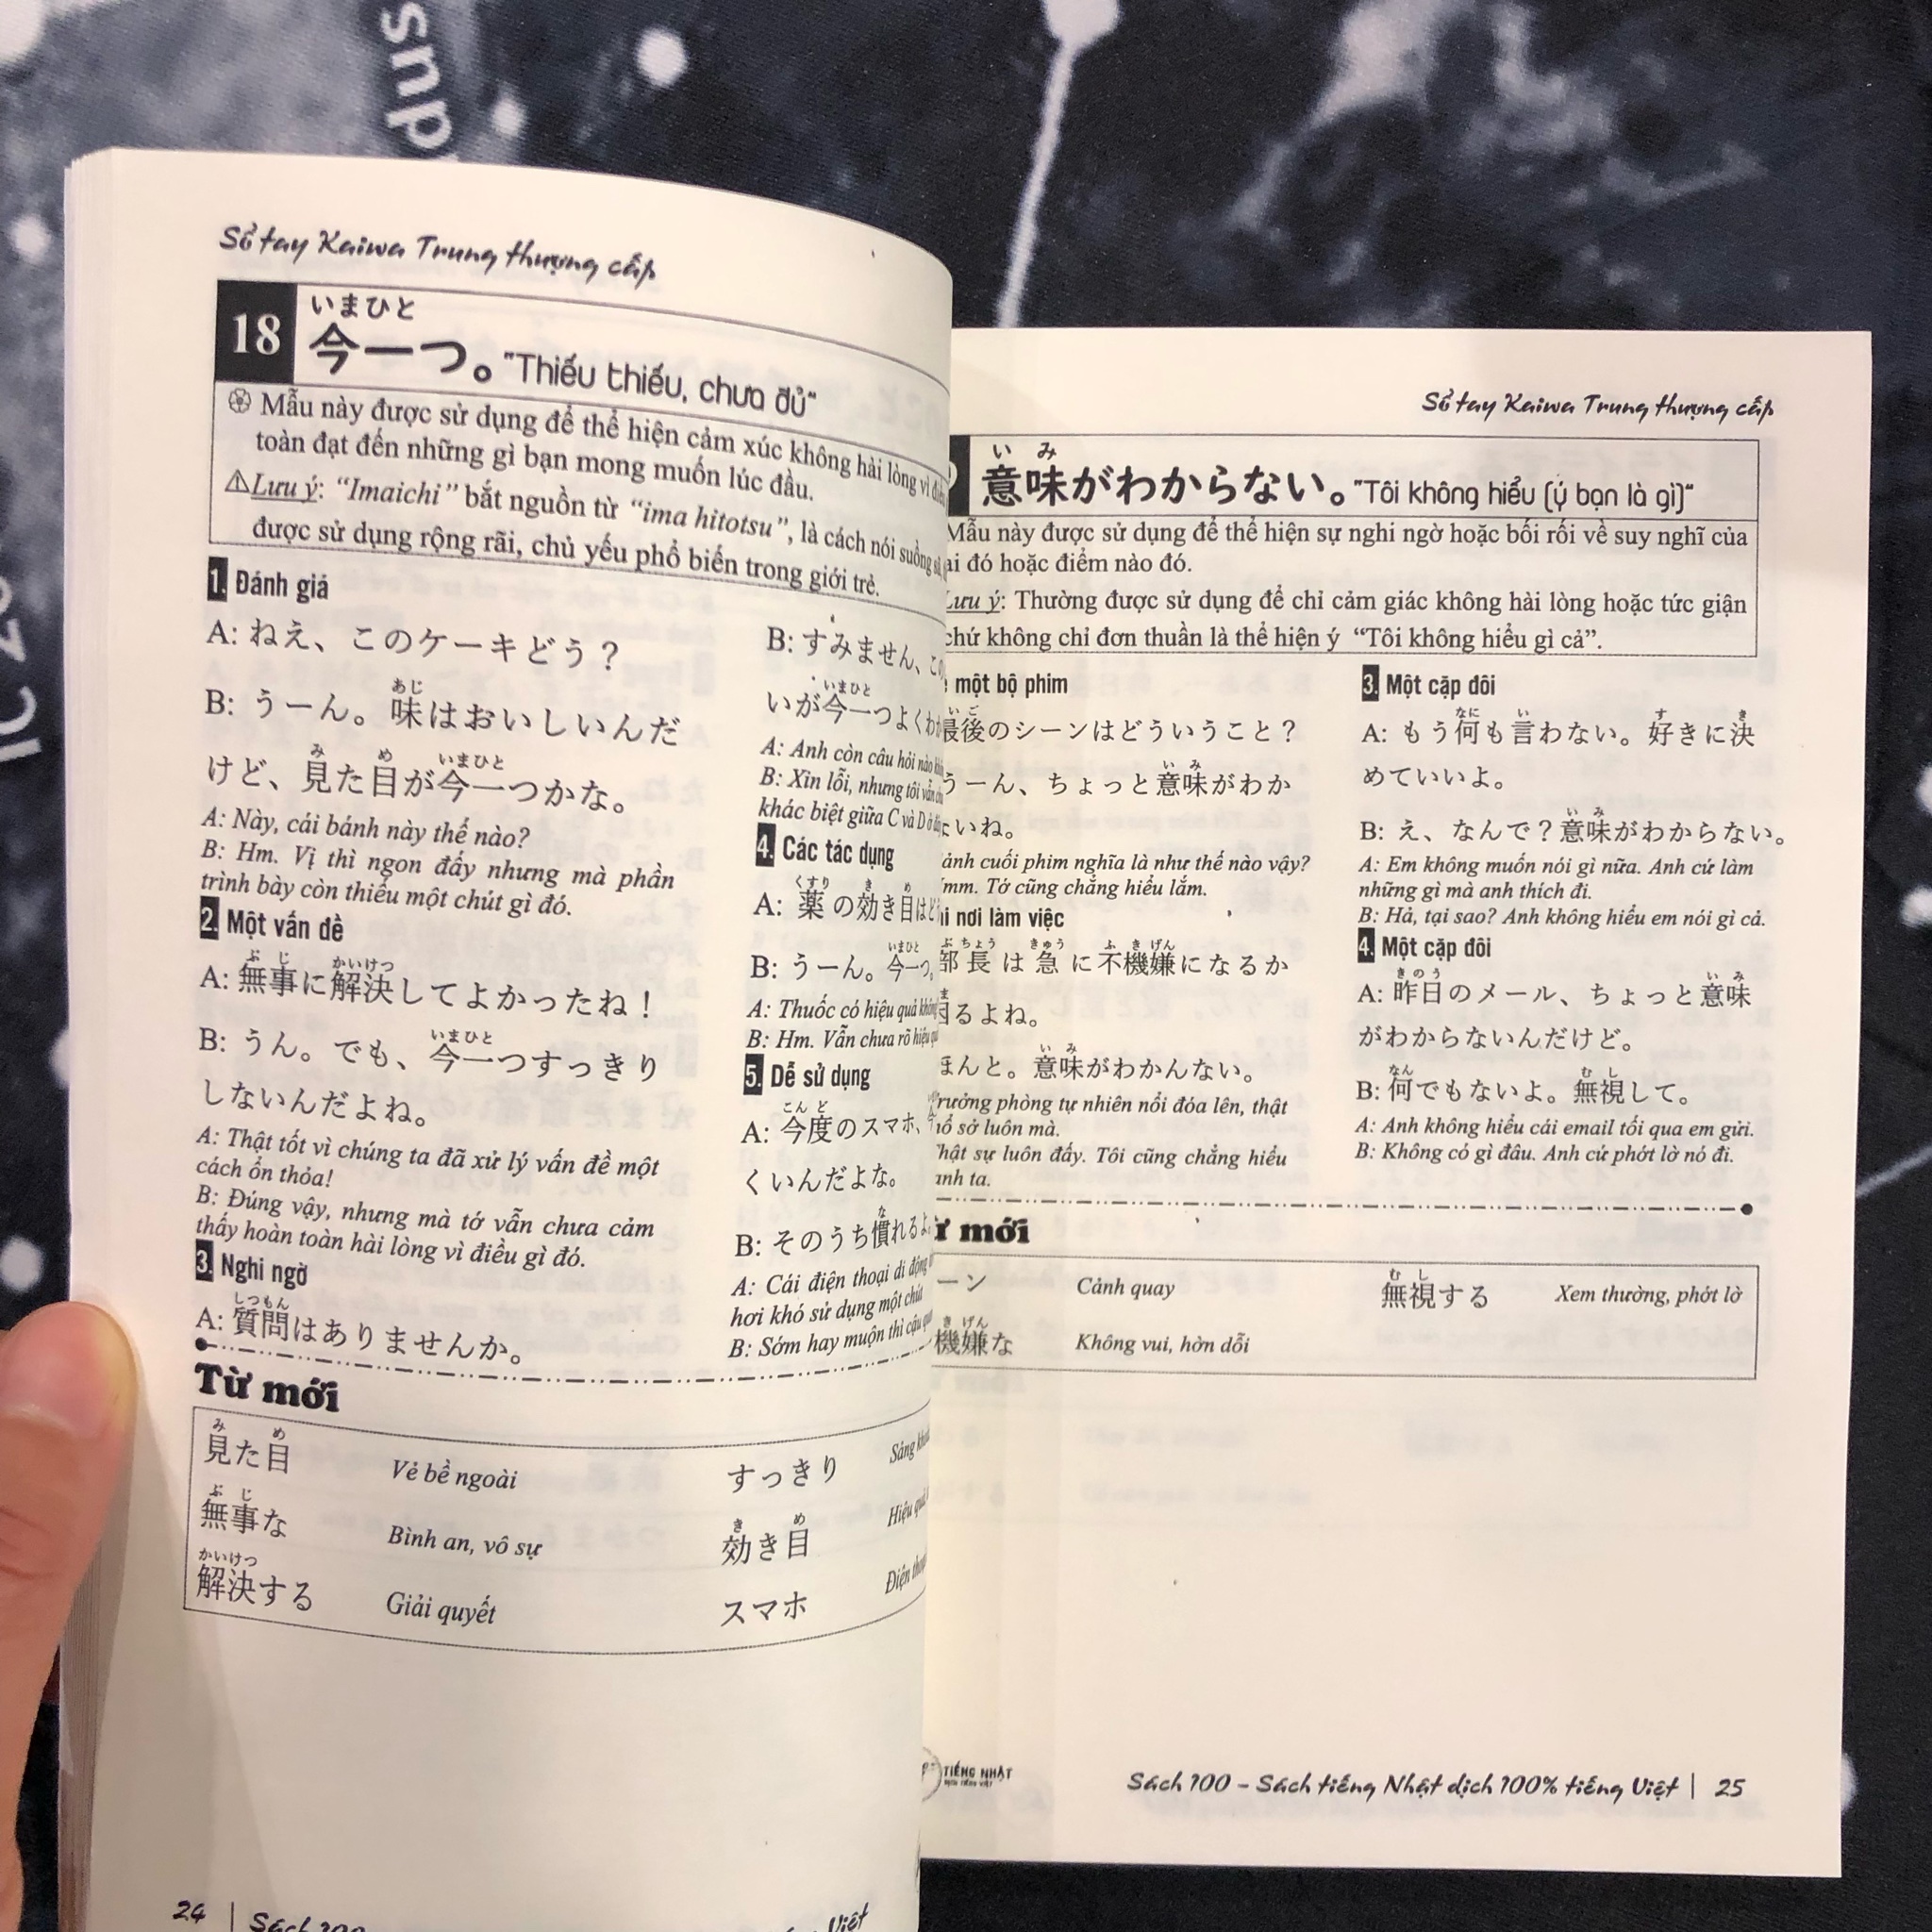 Sổ tay Kaiwa Trung thượng cấp
18
いまひと
今一つ。"Thiếu thiếu, chưa đủ"
Mẫu này được sử dụng để thể hiện cảm xúc không hài lòng vì
toàn đạt đến những gì bạn mong muốn lúc đầu.
⚠Lưu ý: "Imaichi" bắt nguồn từ "ima hitotsu", là cách nói suồng
được sử dụng rộng rãi, chủ yếu phổ biến trong giới trẻ.
1. Đánh giá
A: ねえ、このケーキどう？
あじ
B: うーん。味はおいしいんだ
み め いまひと
けど、見た目が今一つかな。
A: Này, cái bánh này thế nào?
B: Hm. Vị thì ngon đấy nhưng mà phần
trình bày còn thiếu một chút gì đó.
2. Một vấn đề
ぶ じ かいけつ
A: 無事に解決してよかったね！
いまひと
B: うん。でも、今一つすっきり
しないんだよね。
A: Thật tốt vì chúng ta đã xử lý vấn đề một
cách ổn thỏa!
B: Đúng vậy, nhưng mà tớ vẫn chưa cảm
thấy hoàn toàn hài lòng vì điều gì đó.
3. Nghi ngờ
しつもん
A: 質問はありませんか。
B: すみません、こ
いまひと
いが今一つよくわ
A: Anh còn câu hỏi nào
B: Xin lỗi, nhưng tôi vẫn
khác biệt giữa C và D ở
4. Các tác dụng
くすり き め
A: 薬の効き目は
いまひと
B: うーん。今一つ。
A: Thuốc có hiệu quả
B: Hm. Vẫn chưa rõ hiệu
5. Dễ sử dụng
こん ど
A: 今度のスマホ、
くいんだよな。
な
B: そのうち慣れるよ
A: Cái điện thoại di động
hơi khó sử dụng một chút
B: Sớm hay muộn thì cậu
Từ mới
み め
見た目 Vẻ bề ngoài すっきり
ぶ じ き め
無事な Bình an, vô sự 効き目
かいけつ
解決する Giải quyết スマホ
24 | Sách 100
Sổ tay Kaiwa Trung thượng cấp
い み
意味がわからない。"Tôi không hiểu (ý bạn là gì)"
Mẫu này được sử dụng để thể hiện sự nghi ngờ hoặc bối rối về suy nghĩ của
ai đó hoặc điểm nào đó.
Lưu ý: Thường được sử dụng để chỉ cảm giác không hài lòng hoặc tức giận
chứ không chỉ đơn thuần là thể hiện ý "Tôi không hiểu gì cả".
một bộ phim
最後のシーンはどういうこと？
い み
うーん、ちょっと意味がわか
いね。
cảnh cuối phim nghĩa là như thế nào vậy?
Tớ cũng chẳng hiểu lắm.
nơi làm việc
ぶ ちょう きゅう ふ き げん
部長は急に不機嫌になるか
ま
困るよね。
い み
ほんと。意味がわかんない。
Trưởng phòng tự nhiên nổi đóa lên, thật
khổ sở luôn mà.
Thật sự luôn đấy. Tôi cũng chẳng hiểu
anh ta.
3. Một cặp đôi
なに い す き
A: もう何も言わない。好きに決
めていいよ。
い み
B: え、なんで？意味がわからない。
A: Em không muốn nói gì nữa. Anh cứ làm
những gì mà anh thích đi.
B: Hả, tại sao? Anh không hiểu em nói gì cả.
4. Một cặp đôi
きのう い み
A: 昨日のメール、ちょっと意味
がわからないんだけど。
なん む し
B: 何でもないよ。無視して。
A: Anh không hiểu cái email tối qua em gửi.
B: Không có gì đâu. Anh cứ phớt lờ nó đi.
mới
む し
ーン Cảnh quay 無視する Xem thường, phớt lờ
き げん
機嫌な Không vui, hờn dỗi
TIẾNG NHẬT
Sách 100 – Sách tiếng Nhật dịch 100% tiếng Việt | 25